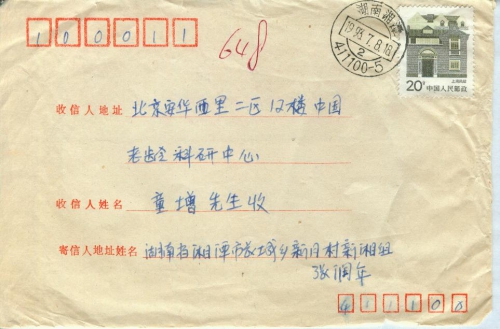 100011
648
湖南湘潭
1993.7.8.18
2
411100-5
20分 中国人民邮政
上海民居
收信人地址 北京安华西里二区12楼中国
老龄科研中心
收信人姓名 童增先生收
寄信人地址姓名 湖南省湘潭市长城乡新月村新湘组
张润年
411100